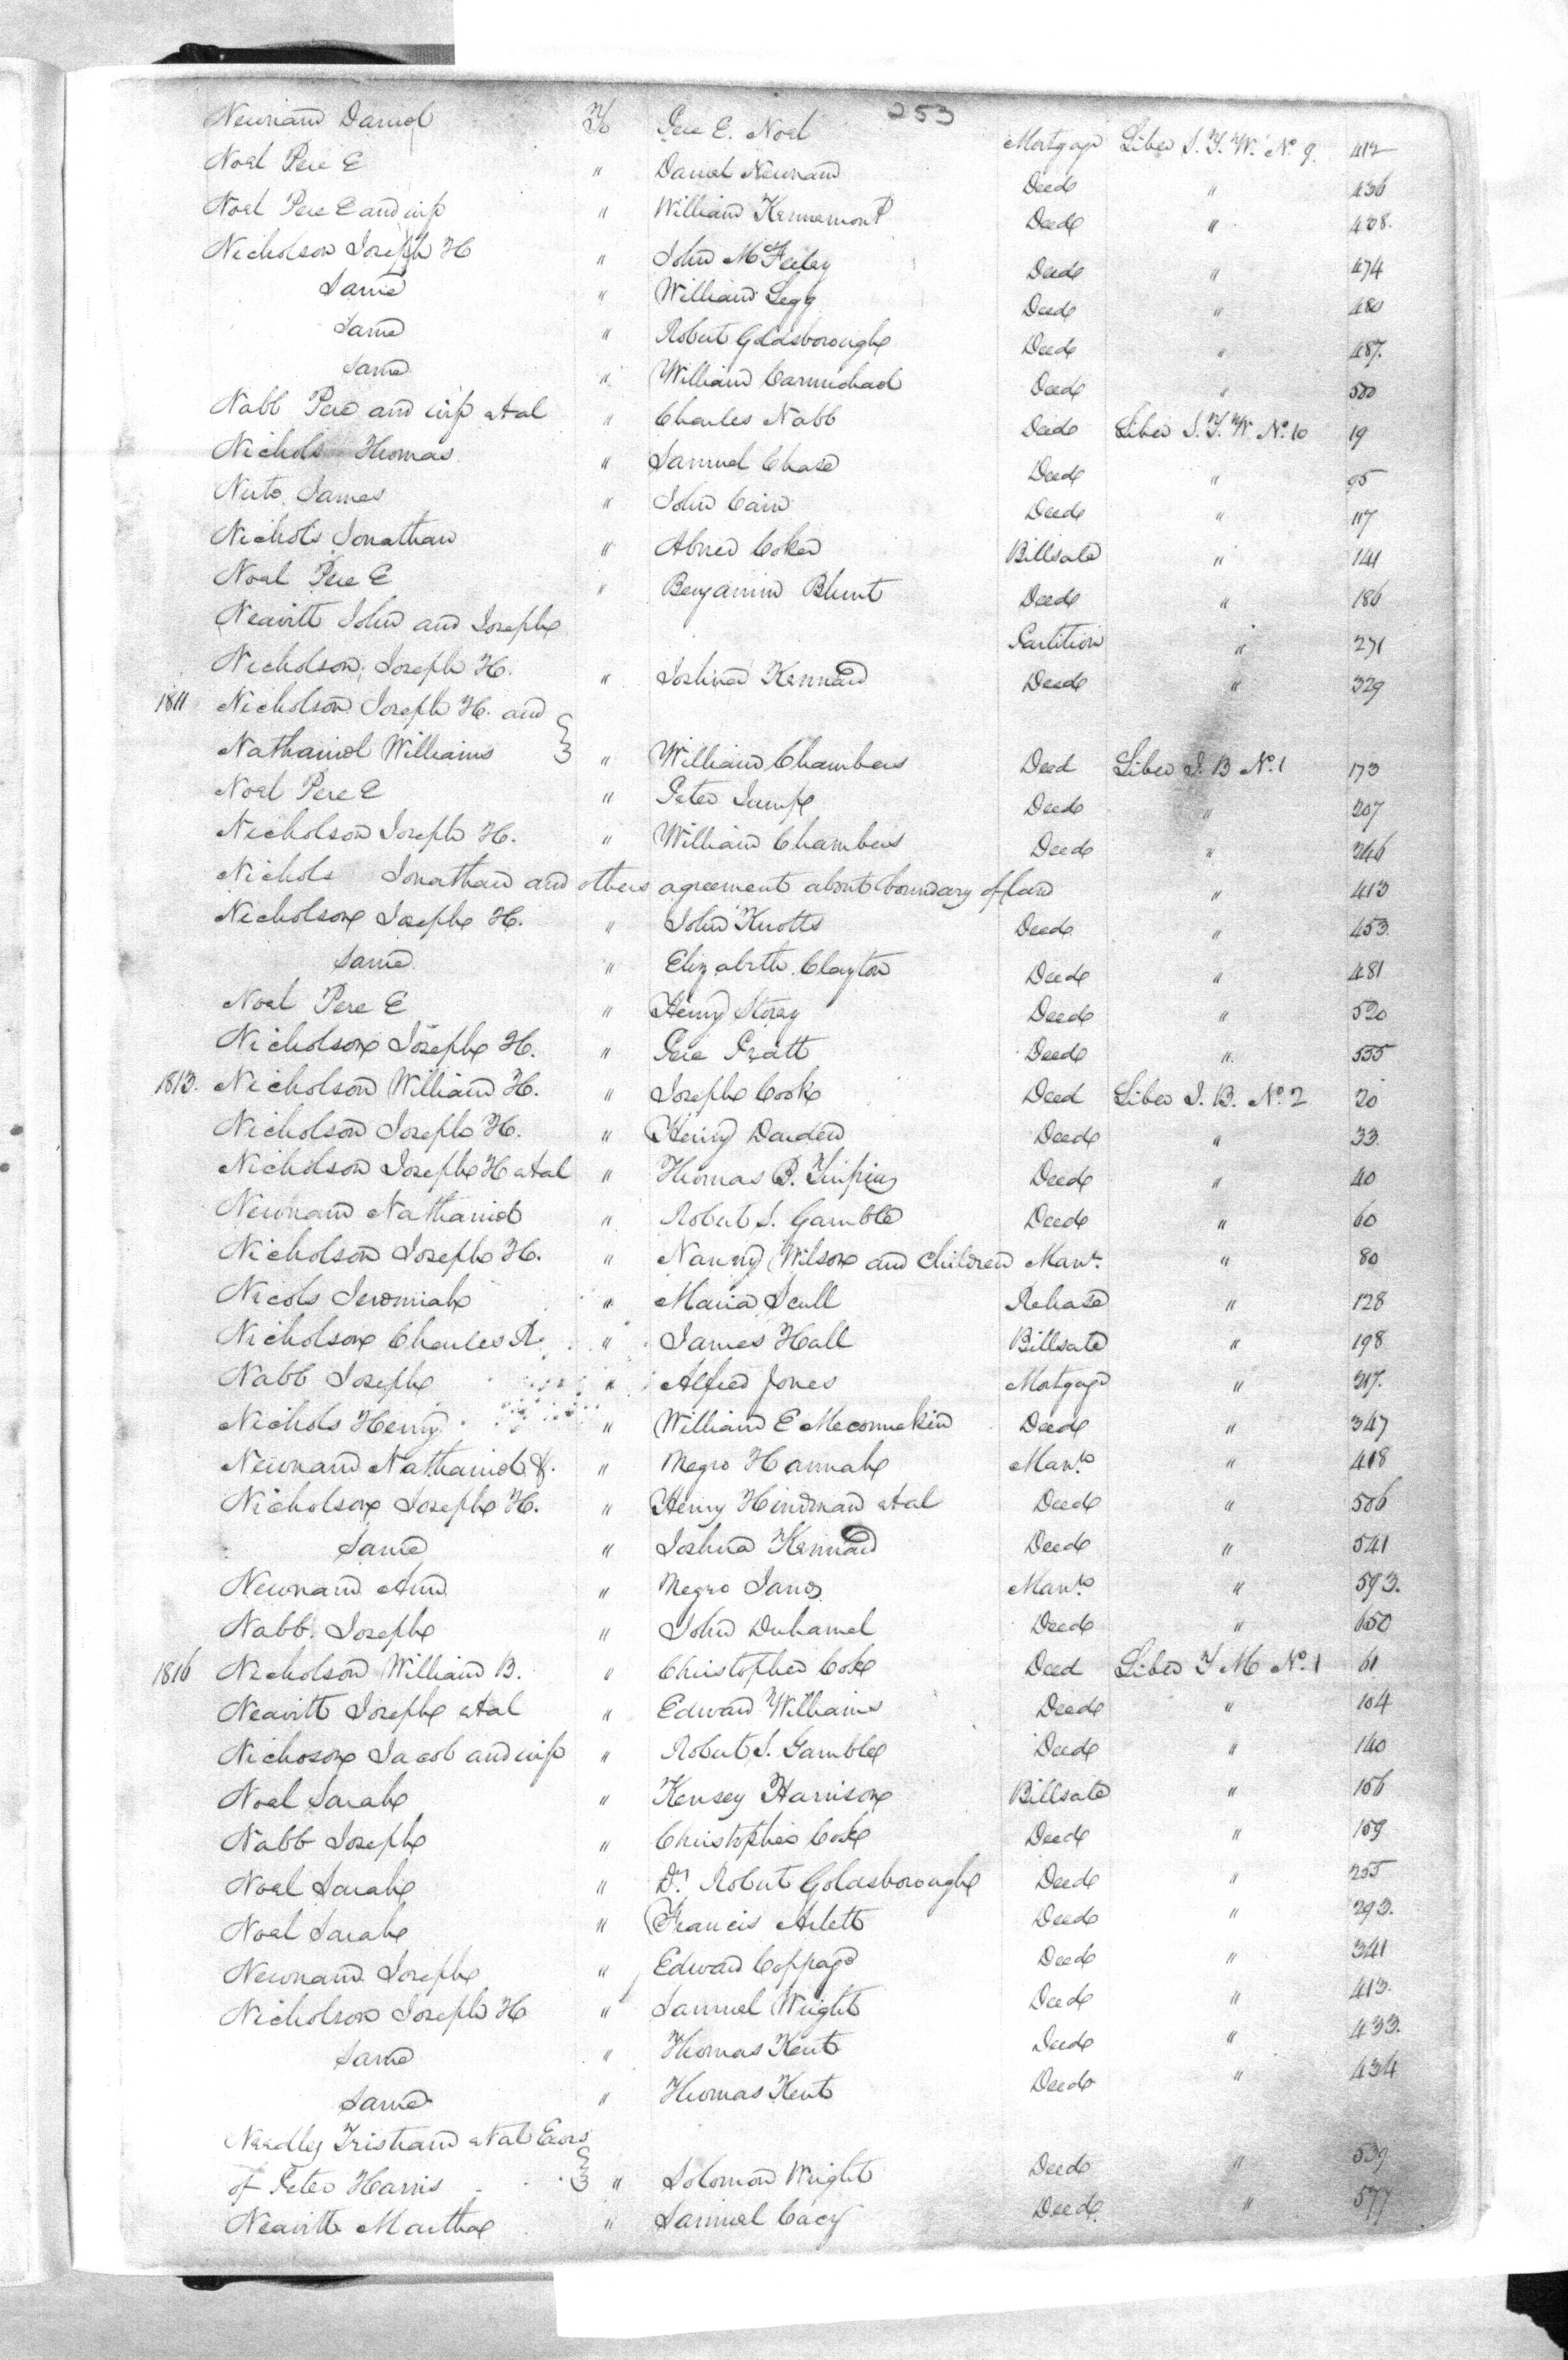 253
Newnam Daniel To Pere E. Noel Mortgage Liber S. T. W. No. 9. 412
Noel Pere E " Daniel Newnam Deed " 436
Noel Pere E and wife " William Kennemont Deed " 438.
Nicholson Joseph H " John McFeeley Deed " 474
Same " William Legg Deed " 480
Same " Robert Goldsborough Deed " 487.
Same " William Carmichael Deed " 500
Nabb Pere and wife et al " Charles Nabb Deed Liber S. T. W. No. 10 19
Nichols Thomas " Samuel Chase Deed " 95
James " John Cain Deed " 117
Nichols Jonathan " Abner Coker Billsale " 141
Noel Pere E " Benjamin Blunt Deed " 186
Neavitt John and Joseph Partition " 271
Nicholson, Joseph H. " Joshua Kennard Deed " 329
1811 Nicholson Joseph H. and
Nathaniel Williams " William Chambers Deed Liber J. B No. 1 173
Noel Pere E " Peter Jump Deed " 207
Nicholson Joseph H. " William Chambers Deed " 246
Nichols Jonathan and others agreement about boundary of land " 413
Nicholson Joseph H. " John Knotts Deed " 453.
Same " Elizabeth Clayton Deed " 481
Noel Pere E " Henry Storey Deed " 520
Nicholson Joseph H. " Pere Pratt Deed " 535
1813. Nicholson William H. " Joseph Cook Deed Liber J. B. No. 2 20
Nicholson Joseph H. " Henry Darden Deed " 33.
Nicholson Joseph H et al " Thomas B. Deed " 40
Newnam Nathaniel " Robert S. Gamble Deed " 60
Nicholson Joseph H. " Nanny Wilson and children Mann. " 80
Nicols Jeremiah " Maria Scull Release " 128
Nicholson Charles R. " James Hall Billsale " 198
Nabb Joseph " Alfred Jones Mortgage " 317.
Nichols Henry " William E Meconnekin Deed " 347
Newnam Nathaniel " Negro Hannah Mann. " 418
Nicholson Joseph H. " Henry Hindman et al Deed " 506
Same " Joshua Kennard Deed " 541
Newnam Ann " Negro James Mann. " 593.
Nabb. Joseph " John Duhamel Deed " 650
1816 Nicholson William B. " Christopher Cox Deed Liber T M No. 1 61
Neavitt Joseph et al " Edward Williams Deed " 104
Nichoson Jacob and wife " Robert S. Gamble Deed " 140
Noel Sarah " Kensey Harrison Billsale " 156
Nabb Joseph " Christopher Cox Deed " 159
Noel Sarah " Dr. Robert Goldsborough Deed " 255
Noel Sarah " Francis Arlett Deed " 293.
Newnam Joseph " Edward Coppage Deed " 341
Nicholson Joseph H " Samuel Wright Deed " 413.
Same " Thomas Kent Deed " 433.
Same " Thomas Kent Deed " 434
Needles Tristram et al Exors
of Peter Harris " Solomon Wright Deed " 539
Neavitt Martha " Samuel Cacy Deed. " 577